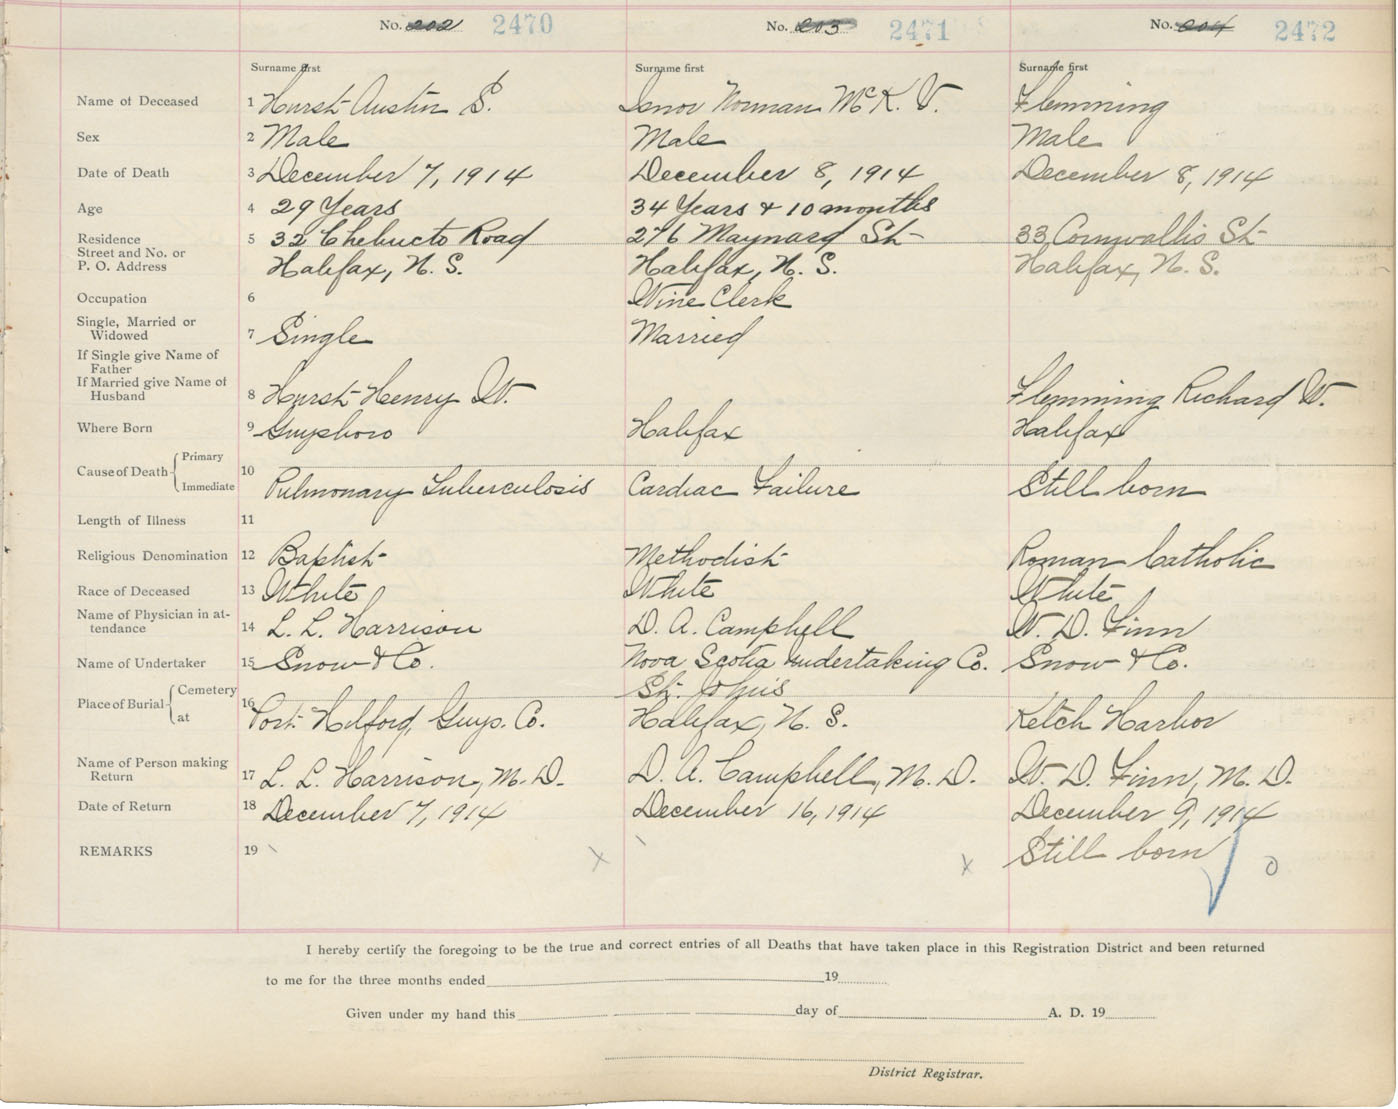 No. 202 2470 No. 203 2471 No. 204 2472
Surname first Surname first Surname first
Name of Deceased 1 Hurst Austin S. Isnor Norman McK. V. Flemming
Sex 2 Male Male Male
Date of Death 3 December 7, 1914 December 8, 1914 December 8, 1914
Age 4 29 Years 34 Years & 10 months
Residence 5 32 Chebucto Road 276 Maynard St 33 Cornwallis St
Street and No. or
P. O. Address Halifax, N. S. Halifax, N. S. Halifax, N. S.
Occupation 6 Wine Clerk
Single, Married or
Widowed 7 Single Married
If Single give Name of
Father
If Married give Name of
Husband 8 Hurst Henry W. Flemming Richard W.
Where Born 9 Guysboro Halifax Halifax
Cause of Death Primary
Immediate 10 Pulmonary Tuberculosis Cardiac Failure Still born
Length of Illness 11
Religious Denomination 12 Baptist Methodist Roman Catholic
Race of Deceased 13 White White White
Name of Physician in at-
tendance 14 L. L. Harrison D. A. Campbell W. D. Finn
Name of Undertaker 15 Snow & Co. Nova Scotia Undertaking Co. Snow & Co.
Place of Burial Cemetery St. John's
at 16 Port Hilford, Guys. Co. Halifax, N. S. Ketch Harbor
Name of Person making
Return 17 L. L. Harrison, M. D. D. A. Campbell, M. D. W. D. Finn, M. D.
Date of Return 18 December 7, 1914 December 16, 1914 December 9, 1914
REMARKS 19 Still born
I hereby certify the foregoing to be the true and correct entries of all Deaths that have taken place in this Registration District and been returned
to me for the three months ended 19
Given under my hand this day of A. D. 19
District Registrar.